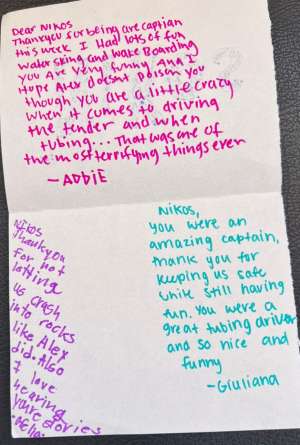 Dear Nikos
Thankyou sor being are captian
this week I Had lots of fun
water sking and wake Boarding
you Are very funny And I
Hope Alex doesnt Poison you
though you are a little crazy
when it comes to driving
the tender and when
tubing... That was one of
the most terrifying things ever
—ADDIE
Nikos
Thankyou
for not
letting
us crash
into rocks
like Alex
did. Also
I love
hearing
youre stories
Nikos,
you were an
amazing captain,
thank you for
keeping us safe
while still having
fun. You were a
great tubing driver
and so nice and
funny
-Giuliana